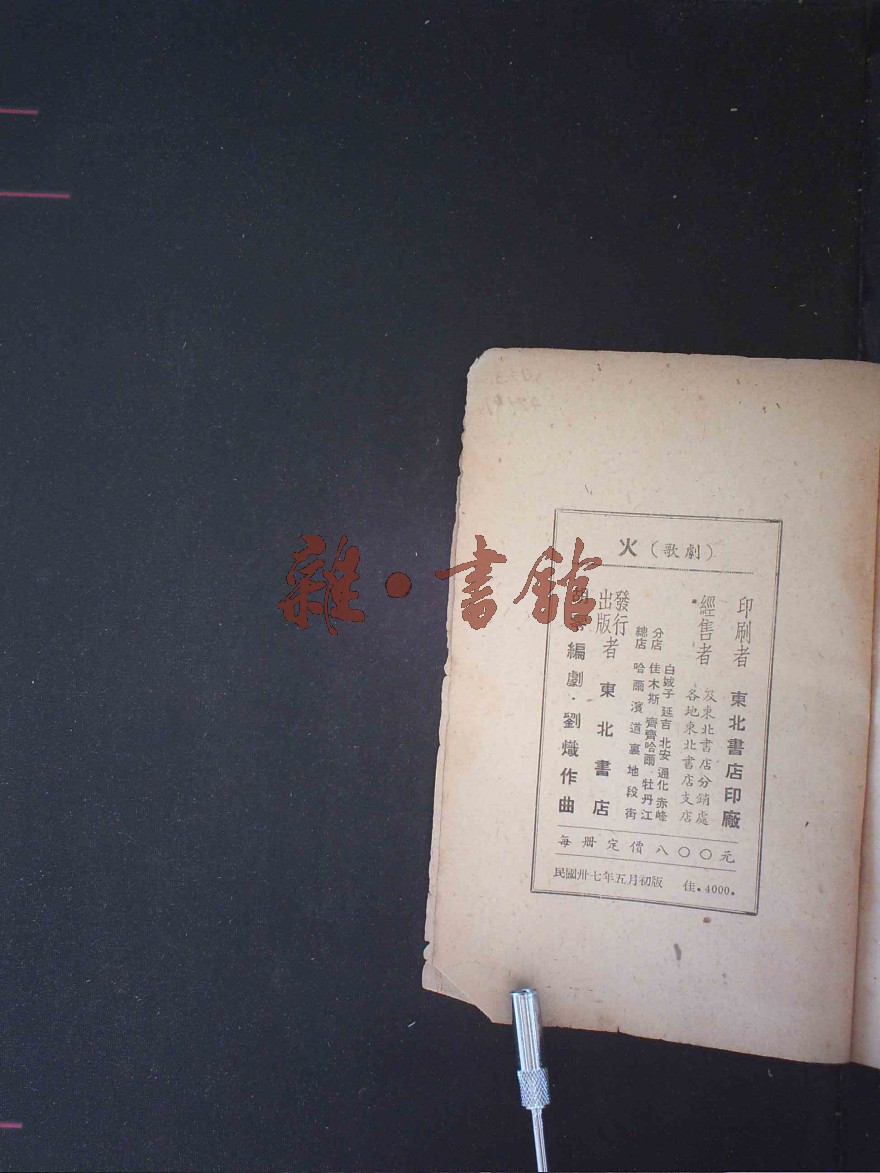 火（歌劇）
印刷者　東北書店印廠
經售者
各地東北書店支店
及東北書店分銷處
分店　佳木斯　齊齊哈爾　牡丹江
白城子　延吉　北安　通化　赤峰
總店　哈爾濱道裏地段街
發行
出版者　東北書店
編劇・劉熾作曲
每册定價八〇〇元
民國卅七年五月初版　佳．4000．
雜・書館